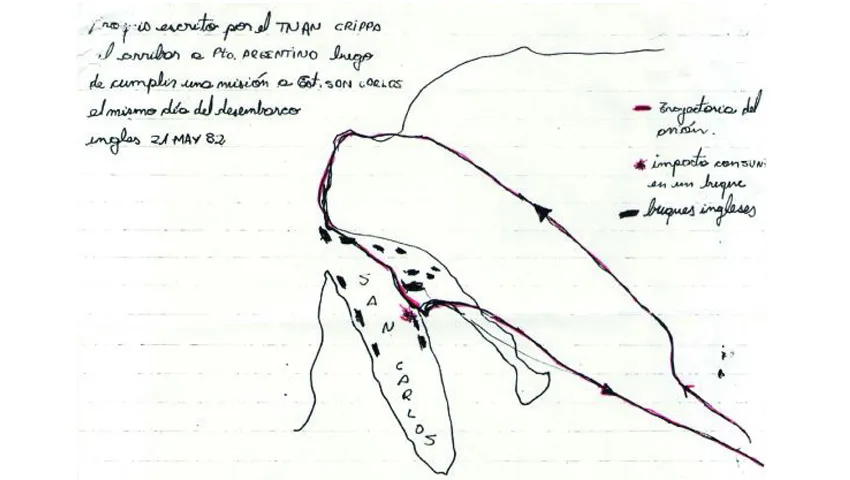 escrito por el TNAN CRIPPA
al arribar a Pto. ARGENTINO luego
de cumplir una misión a Est. SAN CARLOS
el mismo día del desembarco
ingles 21 MAY 82
Trayectoria del
avión.
impacto
en un buque
buques ingleses
SAN
CARLOS